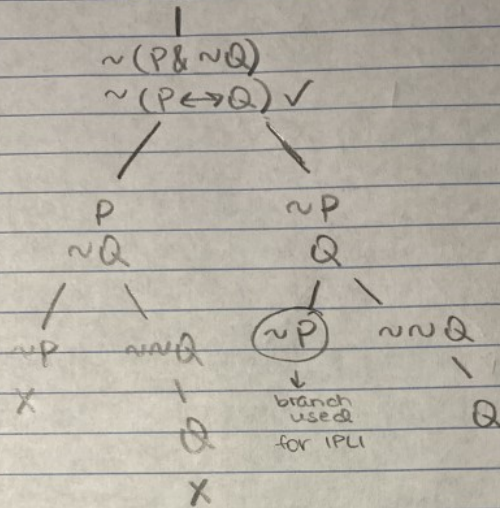 ~(P&~Q)
~(P↔Q) ✓
P ~P
~Q Q
~P ~~Q ~P ~~Q
X
Q
X
↓
branch
used
for IPLI
Q